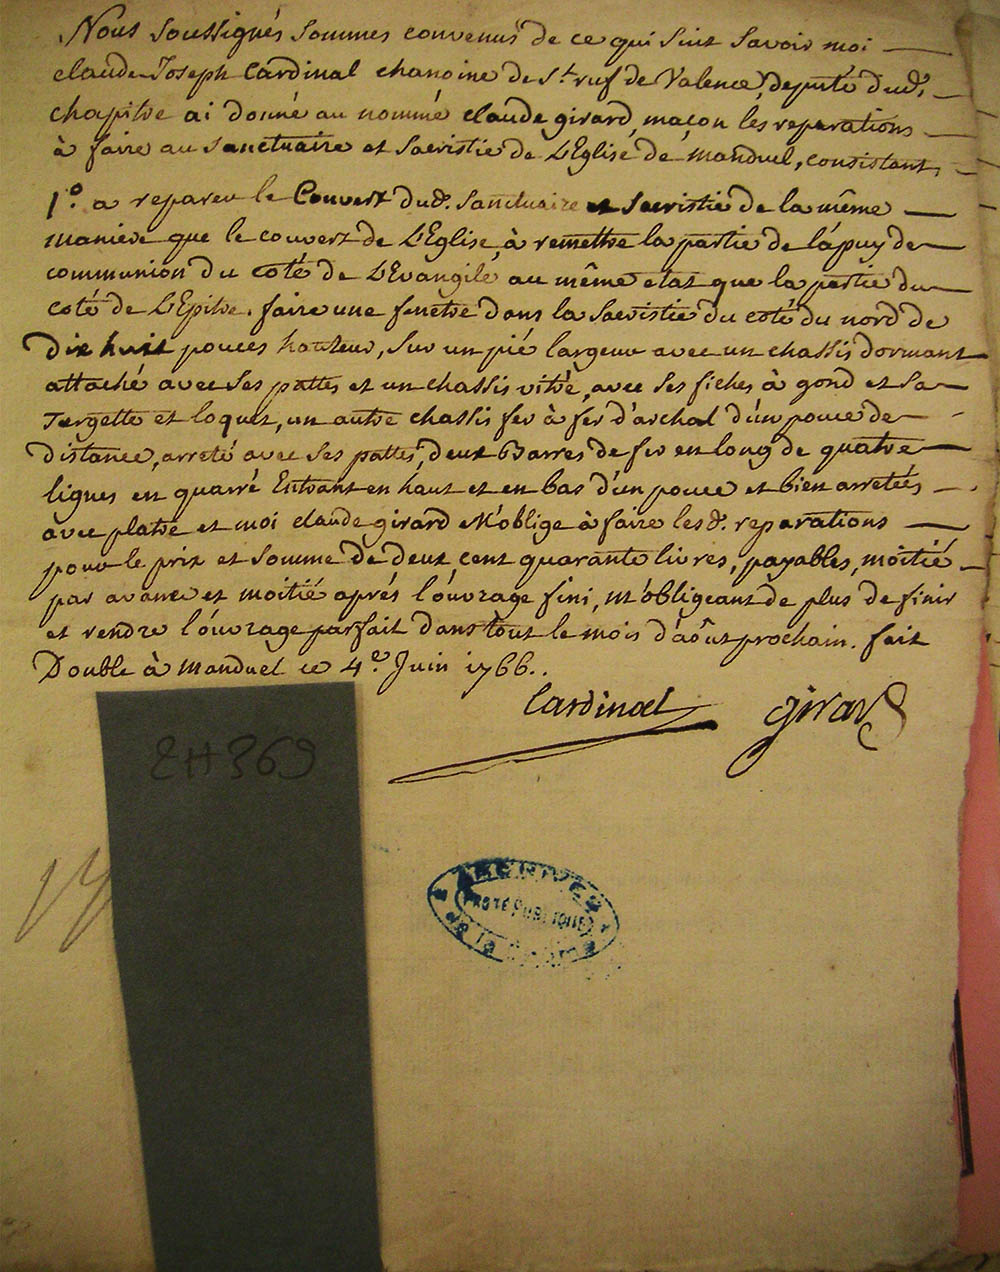 Nous soussignés sommes convenus de ce qui suit savoir moi
claude Joseph Cardinal chanoine de St. ruf de Valence, deputé dud.
chapitre ai donné au nommé claude girard, maçon les reparations
à faire au sanctuaire et sacristie de L'Eglise de Manduel, consistant,
1.º a reparer le Couvert dud. sanctuaire et sacristie de la même
maniere que le couvert de L'Eglise, à remettre la partie de l'apuy de
communion du coté de L'Evangile, au même etat que la partie du
coté de L'Epitre. faire une fenêtre dans la sacristie du coté du nord de
Dix huit pouces hauteur, sur un pié largeur avec un chassis dormant
attaché avec ses pattes et un chassis vitré, avec ses fiches à gond et sa
Targette et loquet, un autre chassis fer à fer d'archal d'un pouce de
distance, arreté avec ses pattes, deux Barres de fer en long de quatre
lignes en quarré Entrant en haut et en bas d'un pouce et bien arretées
avec platre et moi claude girard M'oblige à faire lesd. reparations
pour le prix et somme de deux cent quarante livres, payables, moitié
par avance et moitié aprés l'ouvrage fini, m'obligeant de plus de finir
et rendre l'ouvrage parfait dans tout le mois d'août prochain. fait
Double à Manduel ce 4.e Juin 1766..
Cardinal girard
2H369
ARCHIVES